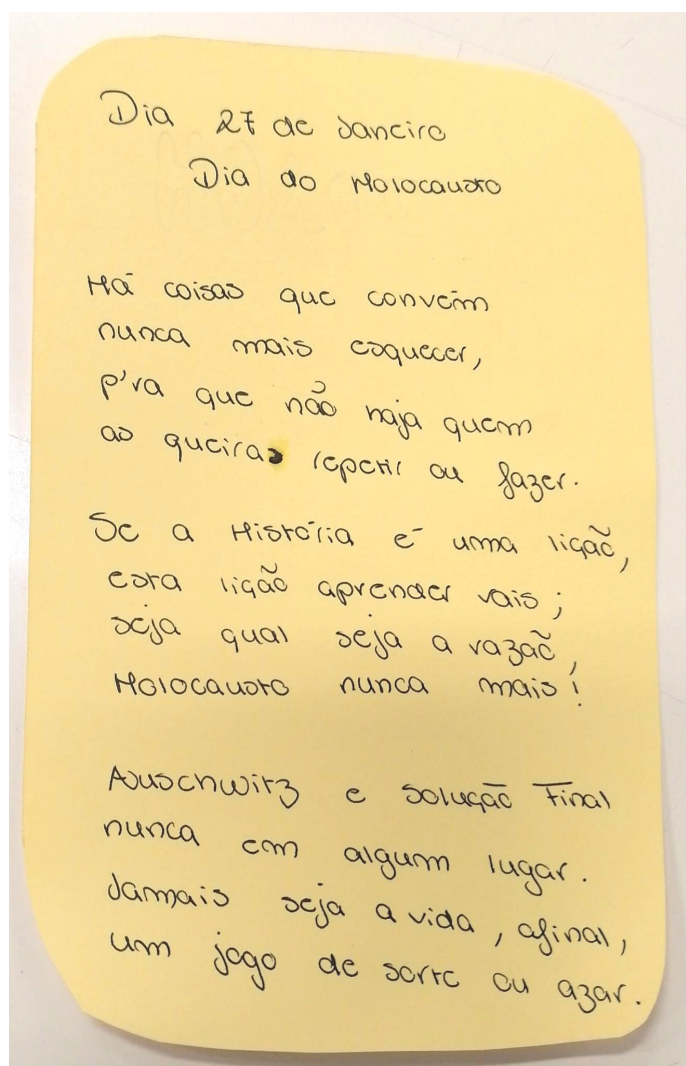 Dia 27 de Janeiro
Dia do Holocausto
Há coisas que convém
nunca mais esquecer,
p'ra que não haja quem
as queiras repetir ou fazer.
Se a História é uma lição,
esta lição aprender vais;
seja qual seja a razão,
Holocausto nunca mais!
Auschwitz e Solução Final
nunca em algum lugar.
Jamais seja a vida, afinal,
um jogo de sorte ou azar.